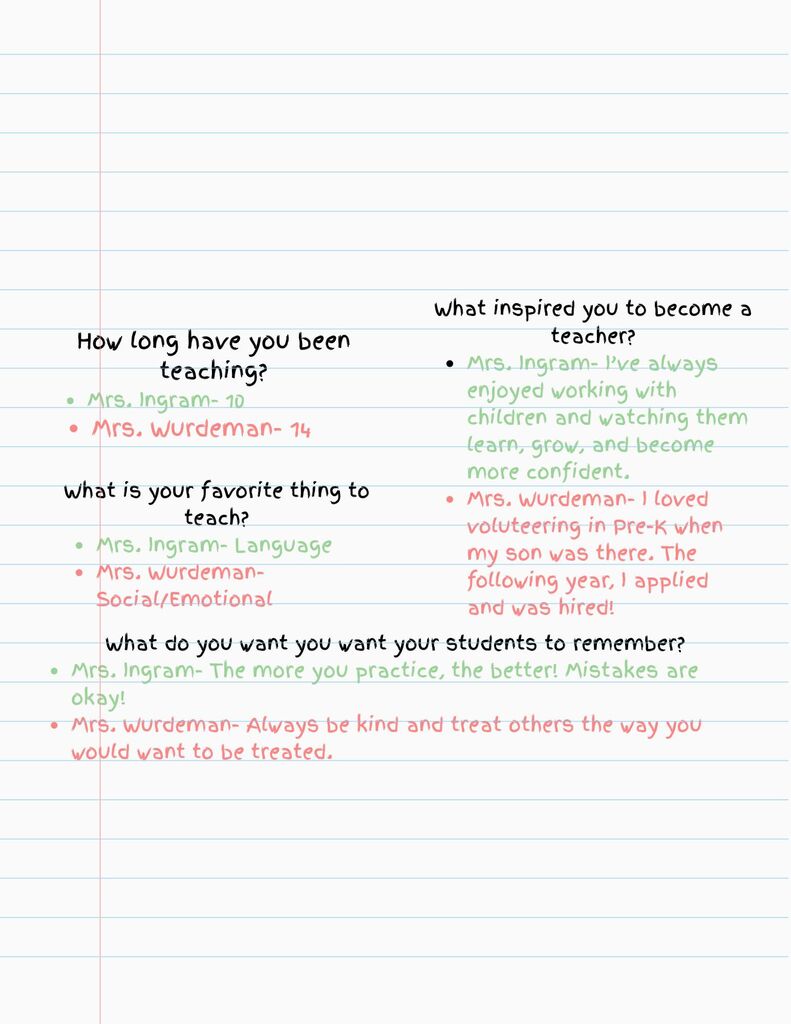 How long have you been
teaching?
• Mrs. Ingram- 10
• Mrs. Wurdeman- 14
What is your favorite thing to
teach?
• Mrs. Ingram- Language
• Mrs. Wurdeman-
Social/Emotional
What inspired you to become a
teacher?
• Mrs. Ingram- I've always
enjoyed working with
children and watching them
learn, grow, and become
more confident.
• Mrs. Wurdeman- I loved
voluteering in Pre-K when
my son was there. The
following year, I applied
and was hired!
What do you want you want your students to remember?
• Mrs. Ingram- The more you practice, the better! Mistakes are
okay!
• Mrs. Wurdeman- Always be kind and treat others the way you
would want to be treated.